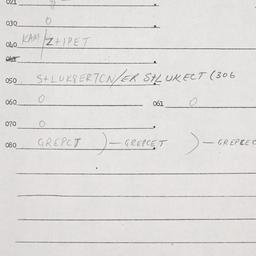 021
030 0
040 KAM/Z+IPET
050 S+LUKBERTCN/ER S+LUKECT (306
060 0 061 0
070 0
080 GREPCT )— GREPCET )— GREPEEC